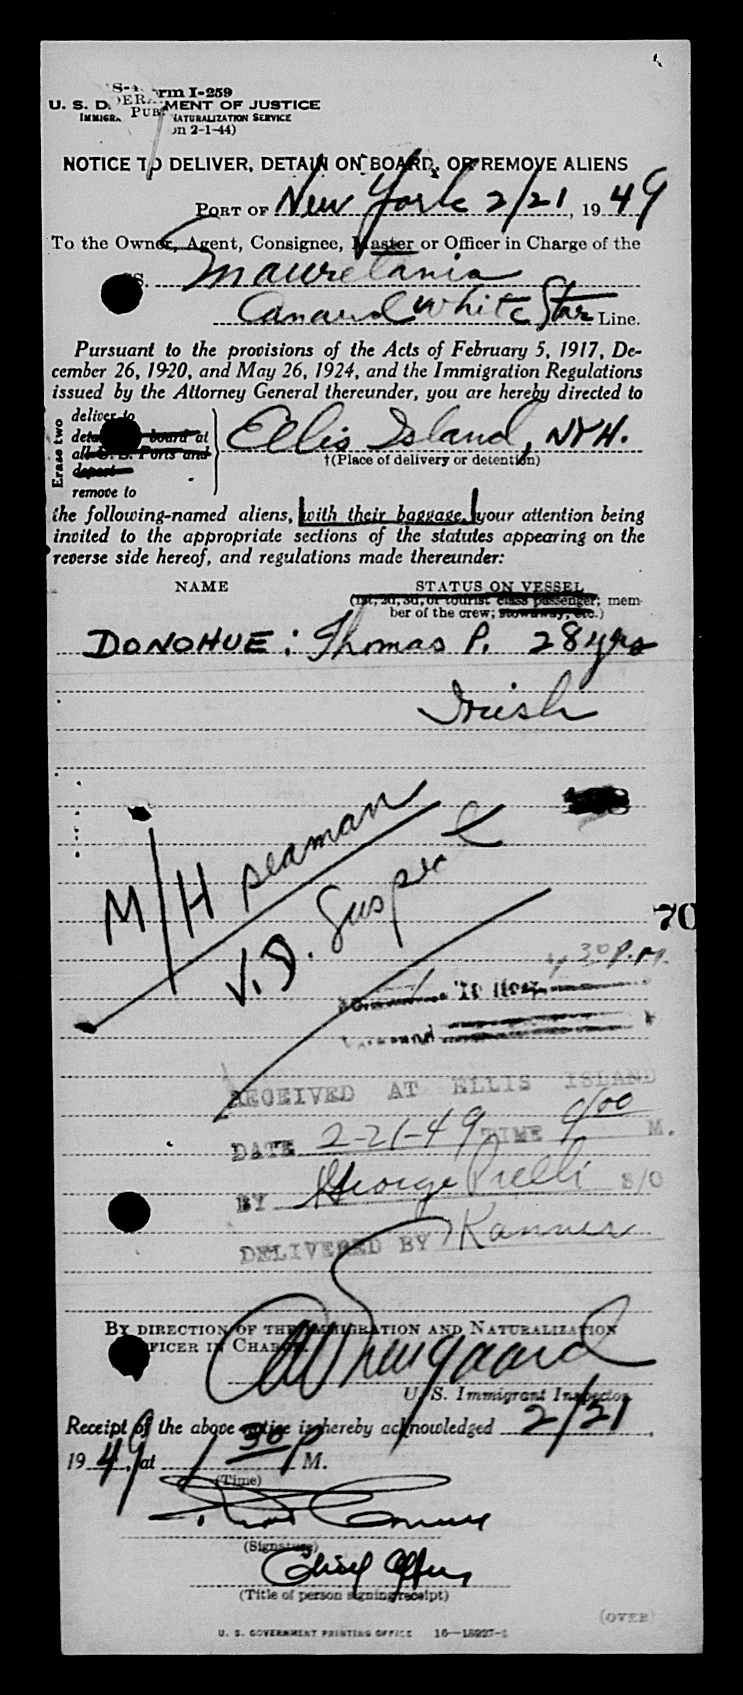 Form I-259
U. S. DEPARTMENT OF JUSTICE
IMMIGRATION NATURALIZATION SERVICE
on 2-1-44)
NOTICE TO DELIVER, DETAIN ON BOARD, OR REMOVE ALIENS
PORT OF New York 2/21, 1949
To the Owner, Agent, Consignee, Master or Officer in Charge of the
SS. Mauretania
Cunard White Star Line.
Pursuant to the provisions of the Acts of February 5, 1917, De-
cember 26, 1920, and May 26, 1924, and the Immigration Regulations
issued by the Attorney General thereunder, you are hereby directed to
Erase two
deliver to
board at
all U. S. Ports and
deport
remove to
Ellis Island, NYH.
†(Place of delivery or detention)
the following-named aliens, with their baggage, your attention being
invited to the appropriate sections of the statutes appearing on the
reverse side hereof, and regulations made thereunder:
NAME STATUS ON VESSEL
(1st, 2d, 3d, or tourist class passenger; mem-
ber of the crew; stowaway, etc.)
DONOHUE: Thomas P. 28 yrs
Irish
M/H seaman
V.D. Suspect
70
4 30 P.M.
RECEIVED AT ELLIS ISLAND
DATE 2-21-49 TIME 9/00 M.
BY George S/O
DELIVERED BY Kanner
BY DIRECTION OF THE IMMIGRATION AND NATURALIZATION
OFFICER IN CHARGE.
U. S. Immigrant Inspector
Receipt of the above notice is hereby acknowledged 2/21,
1949, at 1 30 P M.
(Time)
(Signature)
Chief Officer
(Title of person signing receipt)
(OVER)
U. S. GOVERNMENT PRINTING OFFICE 16—18227-1